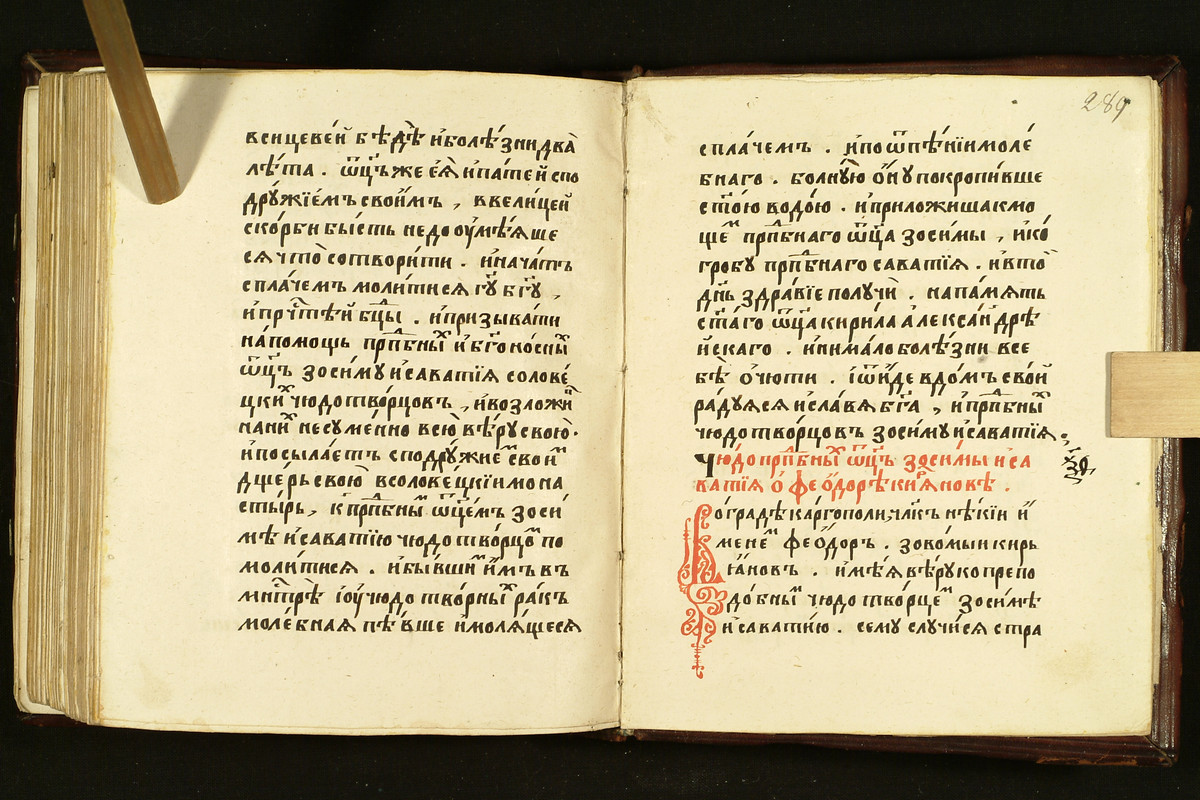 всицевѣй бѣдѣ и҆болѣзни два
лѣта . ѿц҃ъже є҆ѧ̀ и҆патей спо
дрꙋ́жїемъ свои́мъ , ввели́цей
ско́рби бы́сть недоꙋмѣ́ѧше
сѧ что̀ сотвори́ти . и҆нача́тъ
спла́чемъ моли́тисѧ гꙋ҃ бг҃ꙋ ,
и҆прч҃тѣй бц҃ы . и҆призыва́ти
на́помощь прпⷣбныⷯ и҆бг҃оносныⷯ
ѿц҃ъ зоси́мꙋ и҆сава́тїѧ солове́
цкиⷯ чюдотво́рцовъ , и҆возложиⷲ
наниⷯ несꙋме́нно всю̀ вѣ́рꙋ свою̀ .
и҆посыла́етъ сподрꙋ́жиеⷨ своиⷨ
дще́рь свою̀ всолове́цкїи мона
сты́рь , кпрпⷣбныⷨ ѿц҃е́мъ зоси
мѣ и҆сава́тїю чюдотво́рцоⷨ по
моли́тисѧ . и҆бы́вшиⷨ и҆́мъ въ
мнⷭ҇трѣ̀ і҆ꙋчюдотво́рныⷯ ра́къ
моле́бнаѧ пѣ́вше и҆молѧ́щесѧ
спла́чемъ . и҆поѿпѣ́нїи моле́
бнаго . болнꙋ́ю ѻ҆́нꙋ покропи́вше
ст҃о́ю водо́ю . и҆приложи́ша кмо
щеⷨ прпⷣбнаго ѿц҃а зоси́мы , и҆ко́
гробꙋ прпⷣбнаго сава́тїѧ . и҆вто́
дн҃ь здра́вїе полꙋчѝ . напа́мѧть
ст҃а́го ѿц҃а кири́ла алекса́ндрѣ
йскаго . и҆нима́ло болѣ́зни все
бѣ̀ ѻ҆чю́ти . і҆ѿи́де вдо́мъ сво́й
ра́дꙋѧсѧ и҆сла́вѧ бг҃а , и҆прпⷣбныⷯ
чюдотво́рцовъ зоси́мꙋ и҆сава́тїѧ .
Чю́до прпⷣбныⷯ ѿц҃ъ зоси́мы и҆са
ва́тїѧ ѻ҆ ѳео́дорѣ кирїѧ́новѣ .
Во градѣ ка́ргополи, чл҃къ нѣ́кїи и҆́
менеⷨ ѳео́доръ . зово́мыи кирь
ꙗ́новъ . и҆мѣ́ѧ вѣ́рꙋ копрепо
до́бныⷨ чюдотво́рцеⷨ зоси́мѣ
и҆сава́тию . семꙋ̀ слꙋчи́сѧ стра
289